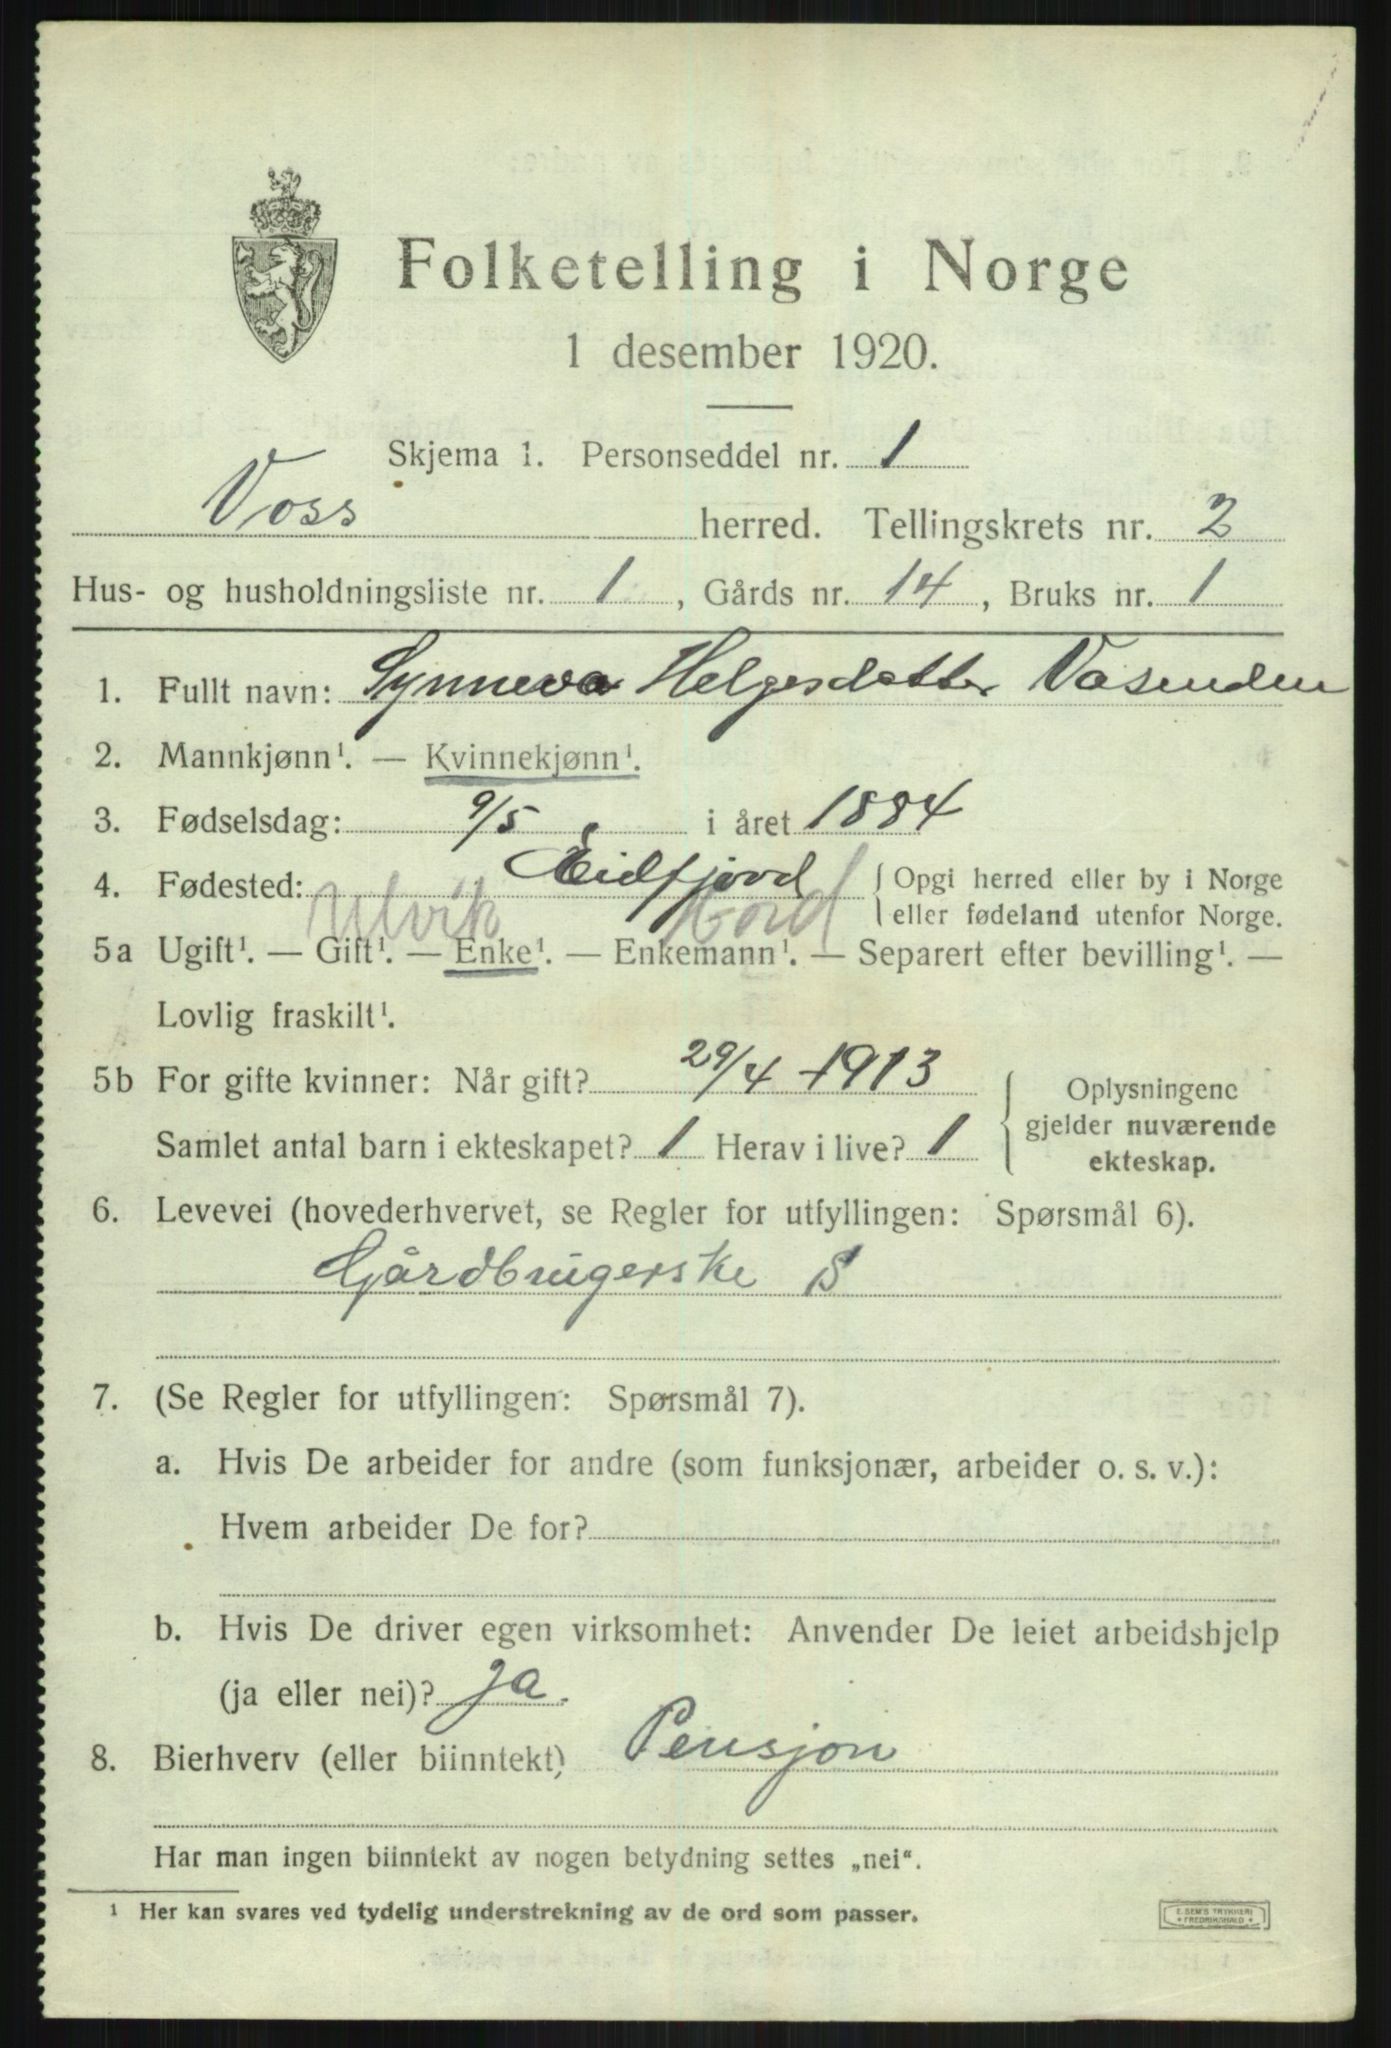 Folketelling i Norge
1 desember 1920.
Skjema 1. Personseddel nr. 1
Voss herred. Tellingskrets nr. 2
Hus- og husholdningsliste nr. 1, Gårds nr. 14, Bruks nr. 1
1. Fullt navn: Synneva Helgesdatter Vasenden
2. Mannkjønn¹. — Kvinnekjønn¹.
3. Fødselsdag: 9/5 i året 1884
4. Fødested: Eidfjord { Opgi herred eller by i Norge
Ulvik Hord eller fødeland utenfor Norge.
5a Ugift¹. — Gift¹. — Enke¹. — Enkemann¹. — Separert efter bevilling¹. —
Lovlig fraskilt¹.
5b For gifte kvinner: Når gift? 29/4 1913
Samlet antal barn i ekteskapet? 1 Herav i live? 1
{ Oplysningene
gjelder nuværende
ekteskap.
6. Levevei (hovederhvervet, se Regler for utfyllingen: Spørsmål 6).
Gårdbrugerske S
7. (Se Regler for utfyllingen: Spørsmål 7).
a. Hvis De arbeider for andre (som funksjonær, arbeider o. s. v.):
Hvem arbeider De for?
b. Hvis De driver egen virksomhet: Anvender De leiet arbeidshjelp
(ja eller nei)? ja.
8. Bierhverv (eller biinntekt) Pensjon
Har man ingen biinntekt av nogen betydning settes „nei“.
¹ Her kan svares ved tydelig understrekning av de ord som passer.
E. SEM'S TRYKKERI
FREDRIKSHALD